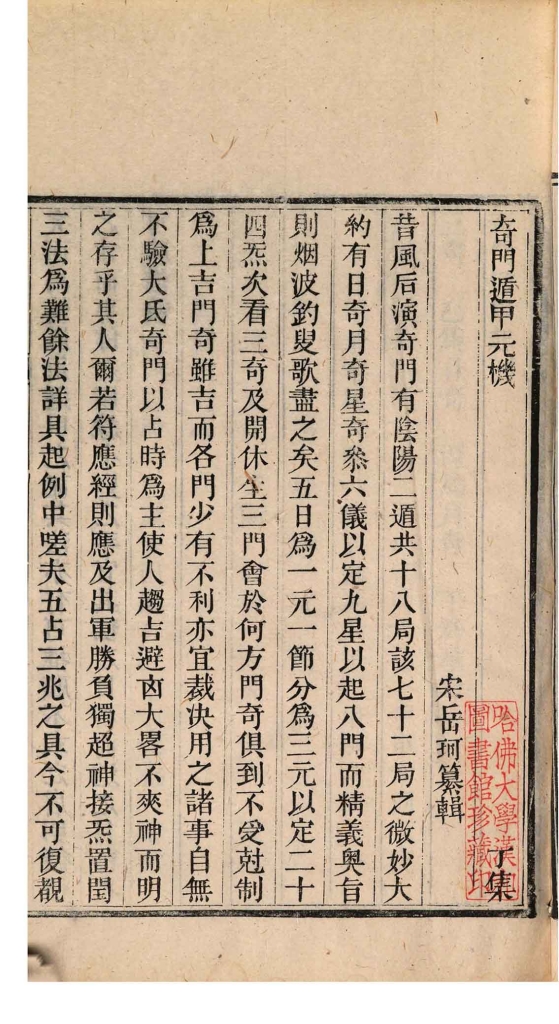 奇門遁甲元機
子集
宋岳珂纂輯
昔風后演奇門有陰陽二遁共十八局該七十二局之微妙大
約有日奇月奇星奇叅六儀以定九星以起八門而精義奧旨
則烟波釣叟歌盡之矣五日爲一元一節分爲三元以定二十
四炁次看三奇及開休生三門會於何方門奇俱到不受尅制
爲上吉門奇雖吉而各門少有不利亦宜裁決用之諸事自無
不驗大氐奇門以占時爲主使人趨吉避凶大畧不爽神而明
之存乎其人爾若符應經則應及出軍勝負獨超神接炁置閏
三法爲難餘法詳具起例中嗟夫五占三兆之具今不可復覩
哈佛大學漢和
圖書館珍藏印